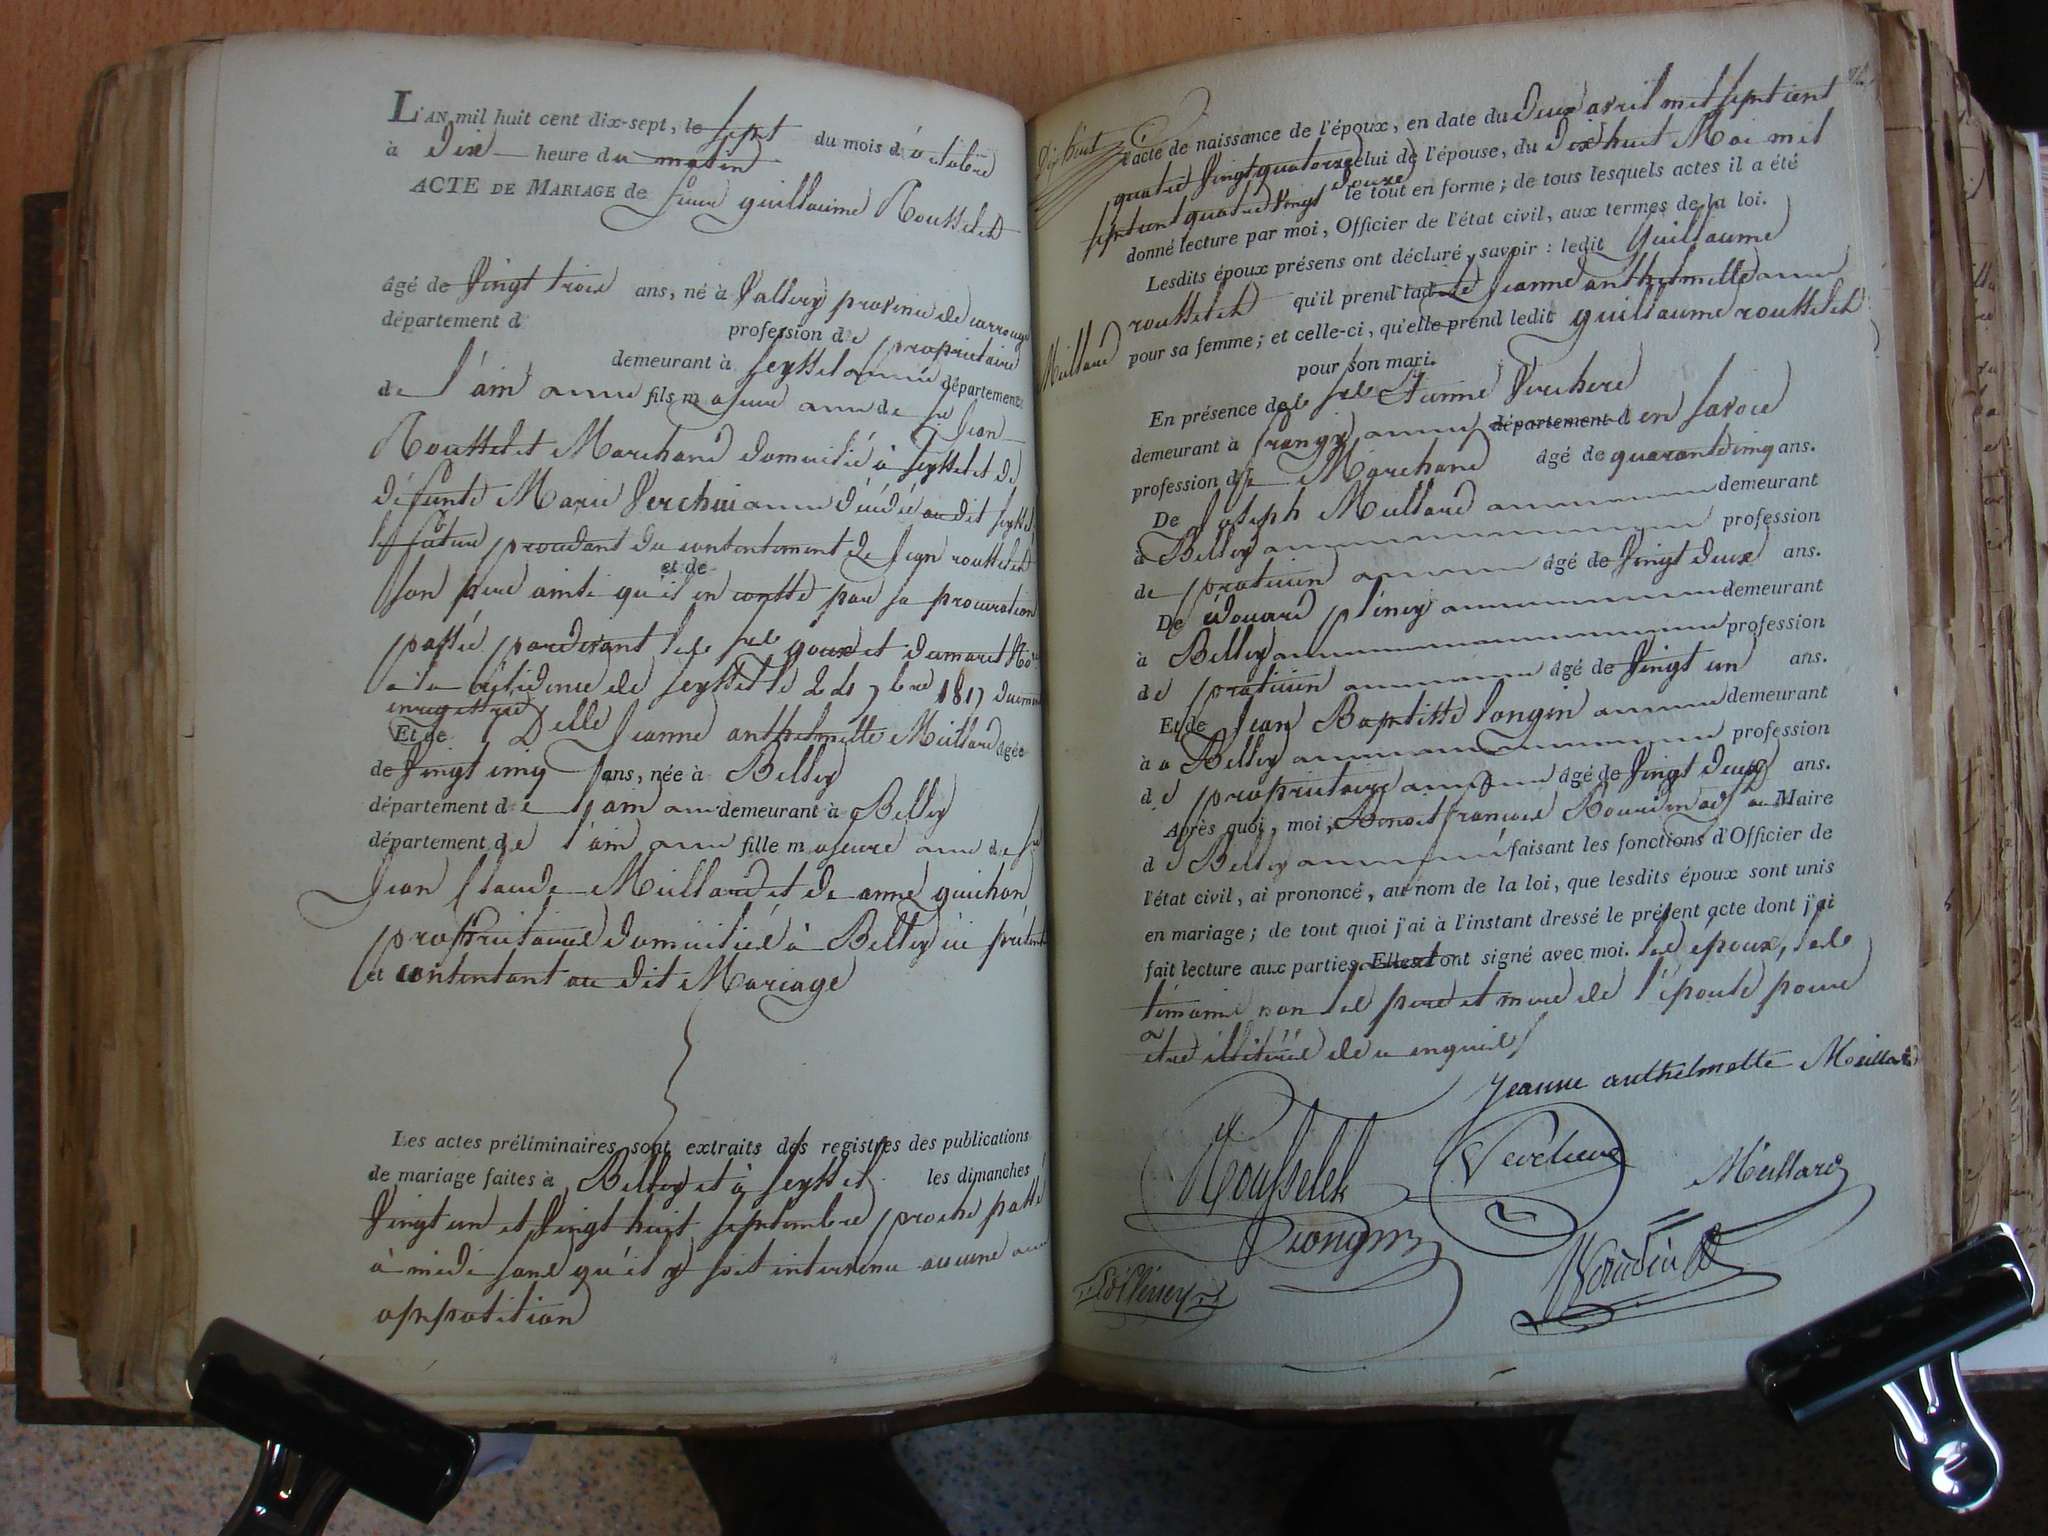 L'AN mil huit cent dix-sept, le sept du mois d'octobre
à Dix heure du matin
ACTE DE MARIAGE de Sieur guillaume Rousselet
âgé de Vingt trois ans, né à Vallery province de carrouge
département d profession de propriétaire
demeurant à seyssel département
de l'ain fils majeur de sr Jean
Rousselet Marchand domicilié à seyssel et de
défunte Marie Verchere décédée au dit seyssel
le futur procédant du consentement de Jean rousselet
et de
son père ainsi qu'il en conste par sa procuration
passée pardevant les srs goux et
à la résidence de seyssel le 7bre 1817
enregistrée
Et de Delle Jeanne anthelmette Millard âgée
de Vingt cinq ans, née à Belley
département de l'ain demeurant à Belley
département de l'ain fille majeure de sr
Jean Claude Millard et de anne guichon
propriétaires domiciliés à Belley ici présents
et consentant au dit Mariage
Les actes préliminaires sont extraits des registres des publications
de mariage faites à Belley et à seyssel les dimanches
Vingt un et Vingt huit septembre proche passé
à midi sans qu'il y soit intervenu aucune
opposition
l'acte de naissance de l'époux, en date du Deux avril mil sept cent
quatre Vingt quatorze celui de l'épouse, du Dix huit Mai mil
sept cent quatre Vingt Douze le tout en forme ; de tous lesquels actes il a été
donné lecture par moi, Officier de l'état civil, aux termes de la loi.
Lesdits époux présens ont déclaré, savoir : ledit Guillaume
rousselet qu'il prend ladite Jeanne anthelmette
Millard pour sa femme ; et celle-ci, qu'elle prend ledit guillaume rousselet
pour son mari.
En présence de Etienne Verchere
demeurant à frangy département d en savoie
profession de Marchand âgé de quarante cinq ans.
De Joseph Millard demeurant
à Belley profession
de praticien âgé de Vingt Deux ans.
De édouard pléney demeurant
à Belley profession
de praticien âgé de Vingt un ans.
Et de Jean Baptiste longin demeurant
à a Belley profession
de propriétaire âgé de Vingt Deux ans.
Après quoi, moi, Benoit françois Maire
de Belley faisant les fonctions d'Officier de
l'état civil, ai prononcé, au nom de la loi, que lesdits époux sont unis
en mariage ; de tout quoi j'ai à l'instant dressé le présent acte dont j'ai
fait lecture aux parties. Elles ont signé avec moi. les époux, les
témoins non les père et mere de l'épouse pour
être illitérés de ce enquis
Jeanne anthelmette Meillard
Rousselet Verchere Meillard
Longin